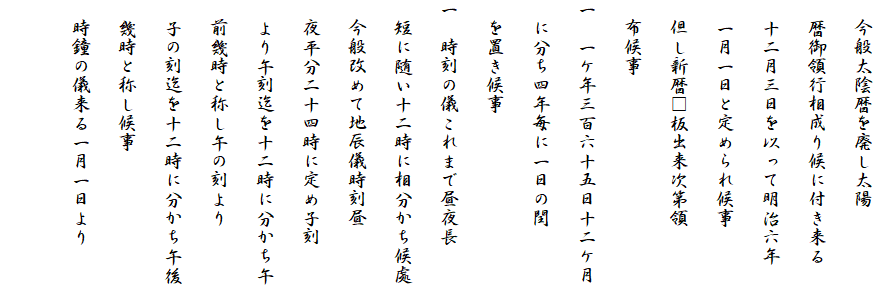 今般太陰暦を廃し太陽
暦御領行相成り候に付き来る
十二月三日を以って明治六年
一月一日と定められ候事
但し新暦□板出来次第領
布候事
一 一ケ年三百六十五日十二ケ月
に分ち四年毎に一日の閏
を置き候事
一 時刻の儀これまで昼夜長
短に随い十二時に相分かち候處
今般改めて地辰儀時刻昼
夜平分二十四時に定め子刻
より午刻迄を十二時に分かち午
前幾時と称し午の刻より
子の刻迄を十二時に分かち午後
幾時と称し候事
時鐘の儀来る一月一日より